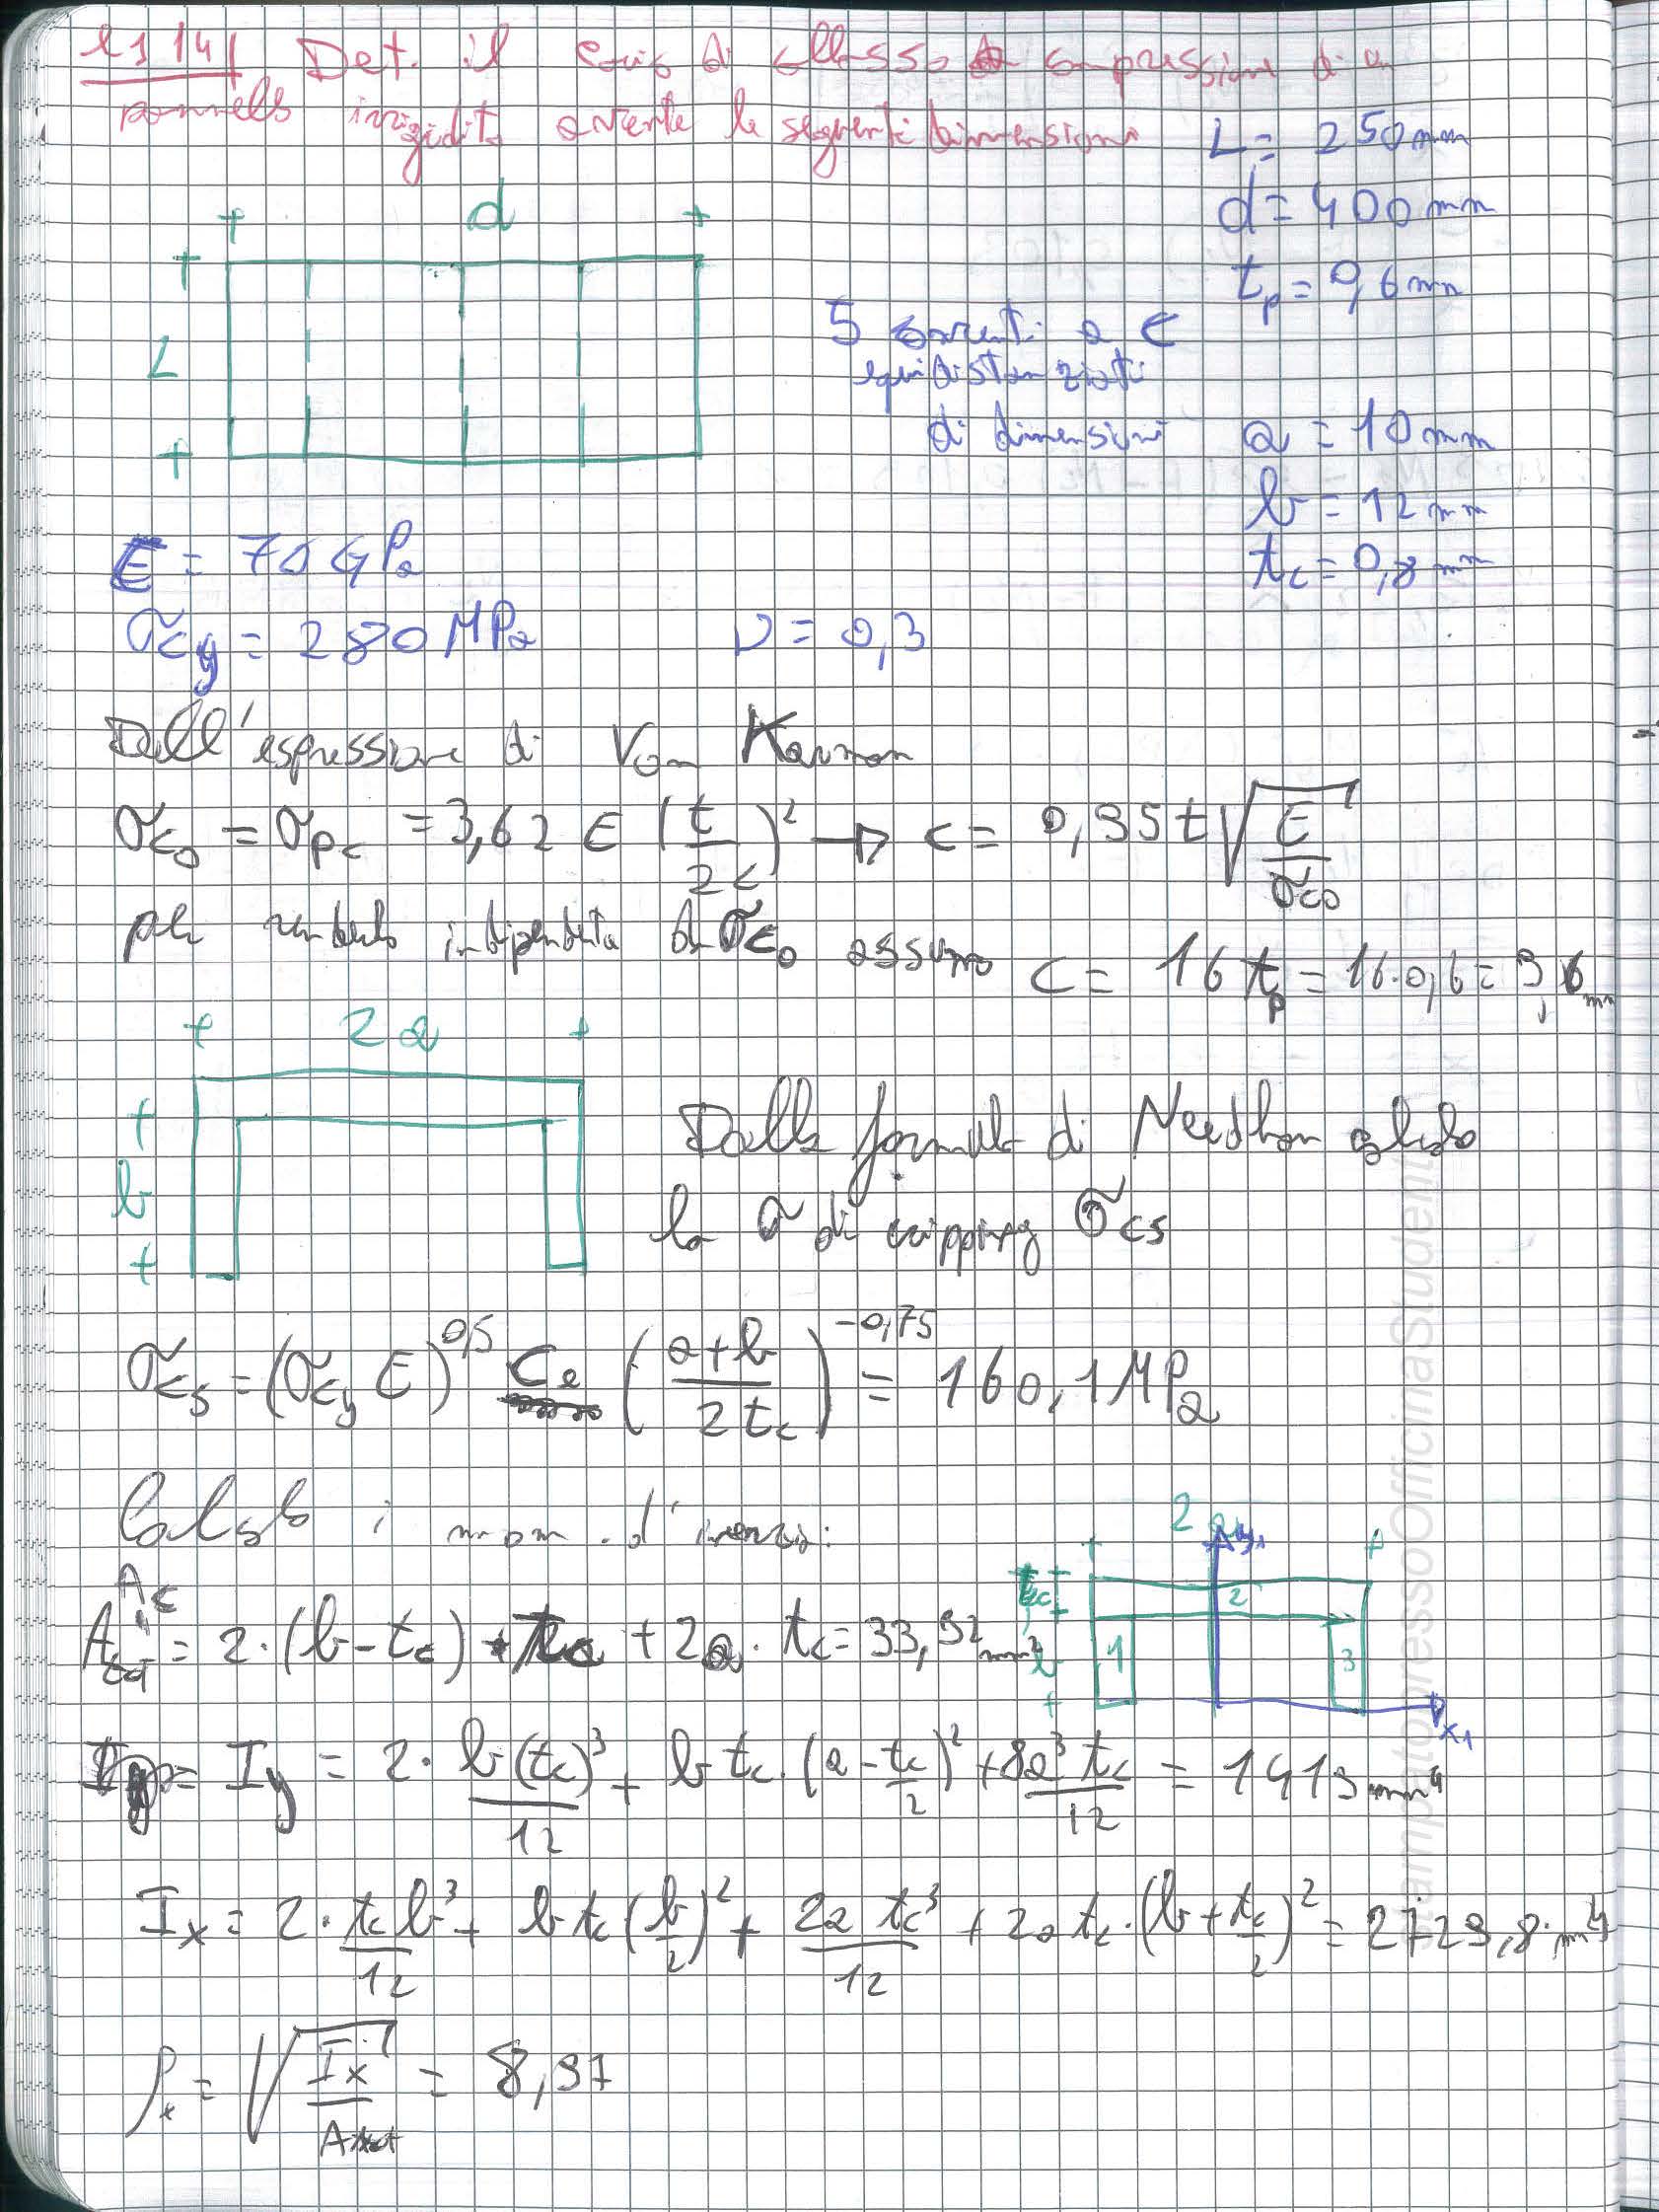 es 14) Det. il carico di collasso a compressione di un
pannello irrigidito avente le seguenti dimensioni
L = 250 mm
d = 400 mm
t_p = 0,6 mm
d
L
5 correnti a C
equidistanziati
di dimensioni
a = 10 mm
b = 12 mm
t_c = 0,8 mm
E = 70 GPa
σ_cy = 280 MPa ν = 0,3
Dall'espressione di Von Karman
σ_co = σ_pc = 3,62 E (t/2c)² → c = 0,95 t √(E/σ_co)
per renderlo indipendente da σ_co assumo c = 16 t_p = 16·0,6 = 9,6 mm
2a
b
Dalla formula di Needham calcolo
la σ di cripping σ_cs
σ_cs = (σ_cy E)^0,5 C_e ((a+b)/(2t_c))^-0,75 = 160,1 MPa
Calcolo i mom. d'inerzia:
A_c
= 2·(b-t_c)·t_c + 2a·t_c = 33,92 mm²
2a
y_1
t_c
b
1
2
3
x_1
= I_y = 2· b(t_c)³/12 + b t_c·(a - t_c/2)² + 8a³t_c/12 = 1419 mm⁴
I_x = 2· t_c b³/12 + b t_c (b/2)² + 2a t_c³/12 + 2a t_c·(b + t_c/2)² = 2729,8 mm⁴
ρ_x = √(I_x/A_tot) = 8,97
stampatopressoOfficinaStudenti